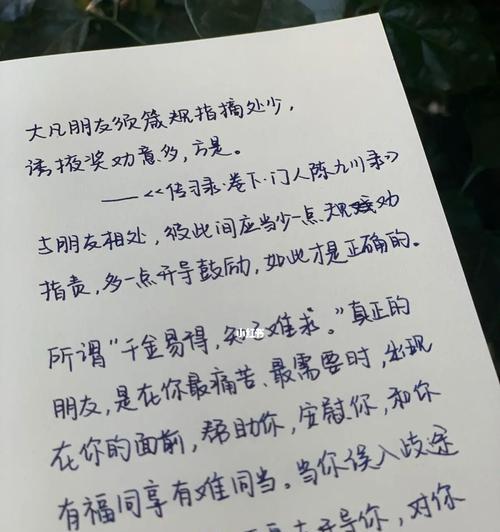 大凡朋友须箴规指摘处少，
诱掖奖劝意多，方是。
——《传习录·卷下·门人陈九川录》
与朋友相处，彼此间应当少一点规劝
指责，多一点开导鼓励，如此才是正确的。
小红书
所谓“千金易得，知己难求。”真正的
朋友，是在你最痛苦、最需要时，出现
在你的面前，帮助你，安慰你，和你
有福同享有难同当。当你误入歧途
开导你，对你